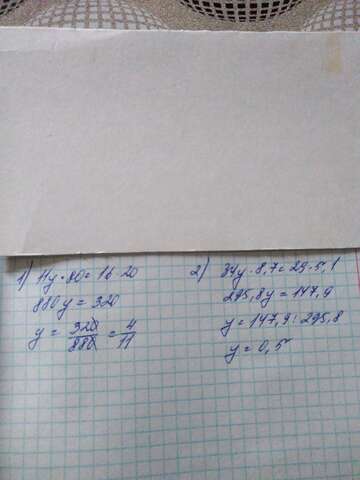 1) 11y · 80 = 16 · 20
880y = 320
y = 320/880 = 4/11
2) 34y · 8,7 = 29 · 5,1
295,8y = 147,9
y = 147,9 : 295,8
y = 0,5